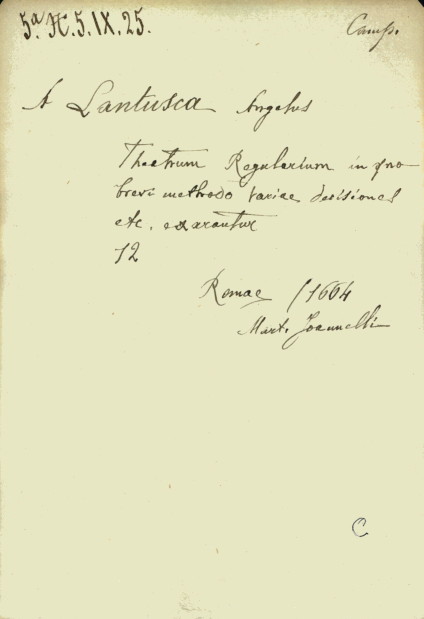 5ª H.5.IX.25.
Camp.
A Lantusca Angelus
Theatrum Regularium in quo
brevi methodo variae decisiones
etc. exarantur
12
Romae 1664
Mart. Joannelli
C